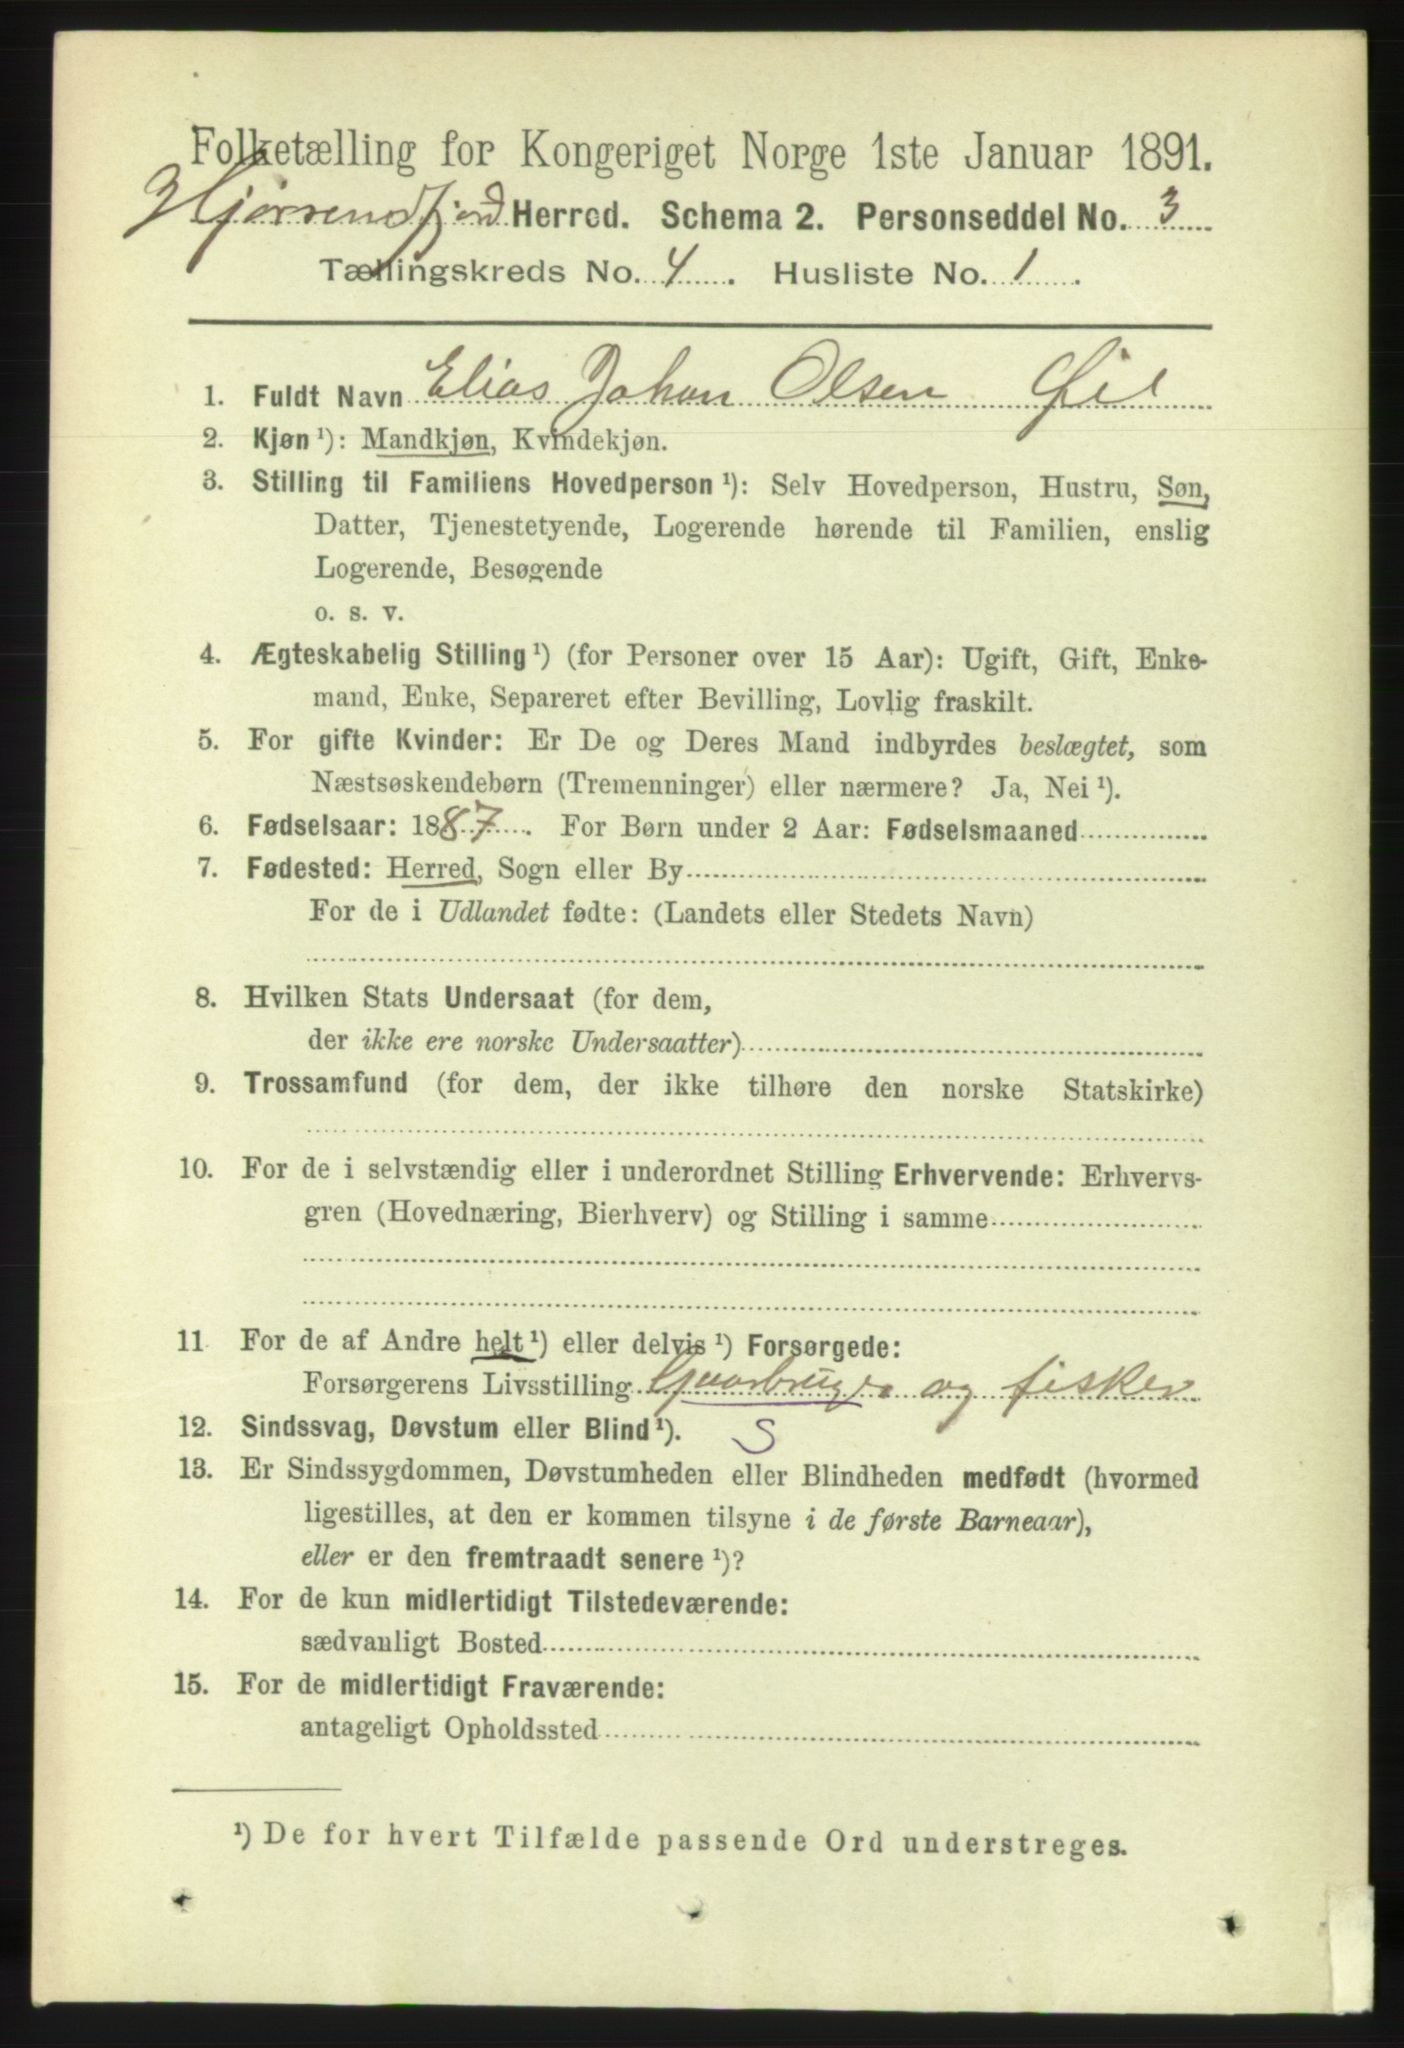 Folketælling for Kongeriget Norge 1ste Januar 1891.
Hjørrendfjord Herred. Schema 2. Personseddel No. 3
Tællingskreds No. 4. Husliste No. 1.
1. Fuldt Navn Elias Johan Olsen Øie
2. Kjøn ¹): Mandkjøn, Kvindekjøn.
3. Stilling til Familiens Hovedperson ¹): Selv Hovedperson, Hustru, Søn,
Datter, Tjenestetyende, Logerende hørende til Familien, enslig
Logerende, Besøgende
o. s. v.
4. Ægteskabelig Stilling ¹) (for Personer over 15 Aar): Ugift, Gift, Enke-
mand, Enke, Separeret efter Bevilling, Lovlig fraskilt.
5. For gifte Kvinder: Er De og Deres Mand indbyrdes beslægtet, som
Næstsøskendebørn (Tremenninger) eller nærmere? Ja, Nei ¹).
6. Fødselsaar: 1887. For Børn under 2 Aar: Fødselsmaaned
7. Fødested: Herred, Sogn eller By
For de i Udlandet fødte: (Landets eller Stedets Navn)
8. Hvilken Stats Undersaat (for dem,
der ikke ere norske Undersaatter)
9. Trossamfund (for dem, der ikke tilhøre den norske Statskirke)
10. For de i selvstændig eller i underordnet Stilling Erhvervende: Erhvervs-
gren (Hovednæring, Bierhverv) og Stilling i samme
11 For de af Andre helt ¹) eller delvis ¹) Forsørgede:
Forsørgerens Livsstilling Gaarbruger og fisker
12. Sindssvag, Døvstum eller Blind ¹). S
13. Er Sindssygdommen, Døvstumheden eller Blindheden medfødt (hvormed
ligestilles, at den er kommen tilsyne i de første Barneaar),
eller er den fremtraadt senere ¹)?
14. For de kun midlertidigt Tilstedeværende:
sædvanligt Bosted
15. For de midlertidigt Fraværende:
antageligt Opholdssted
¹) De for hvert Tilfælde passende Ord understreges.